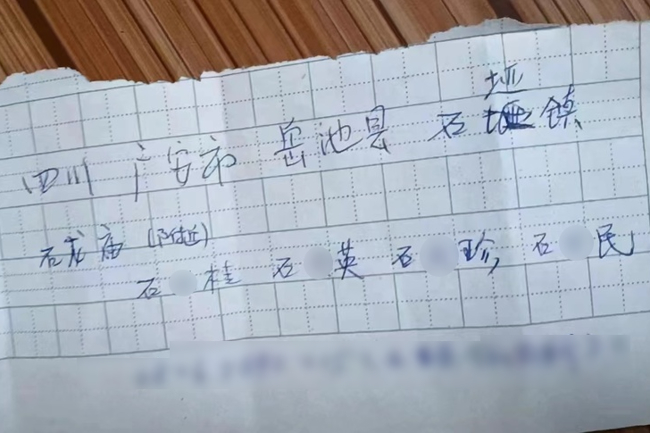 四川 广安市 岳池县 石垭镇
石龙庙(附近)
石 桂 石 英 石 珍, 石 民